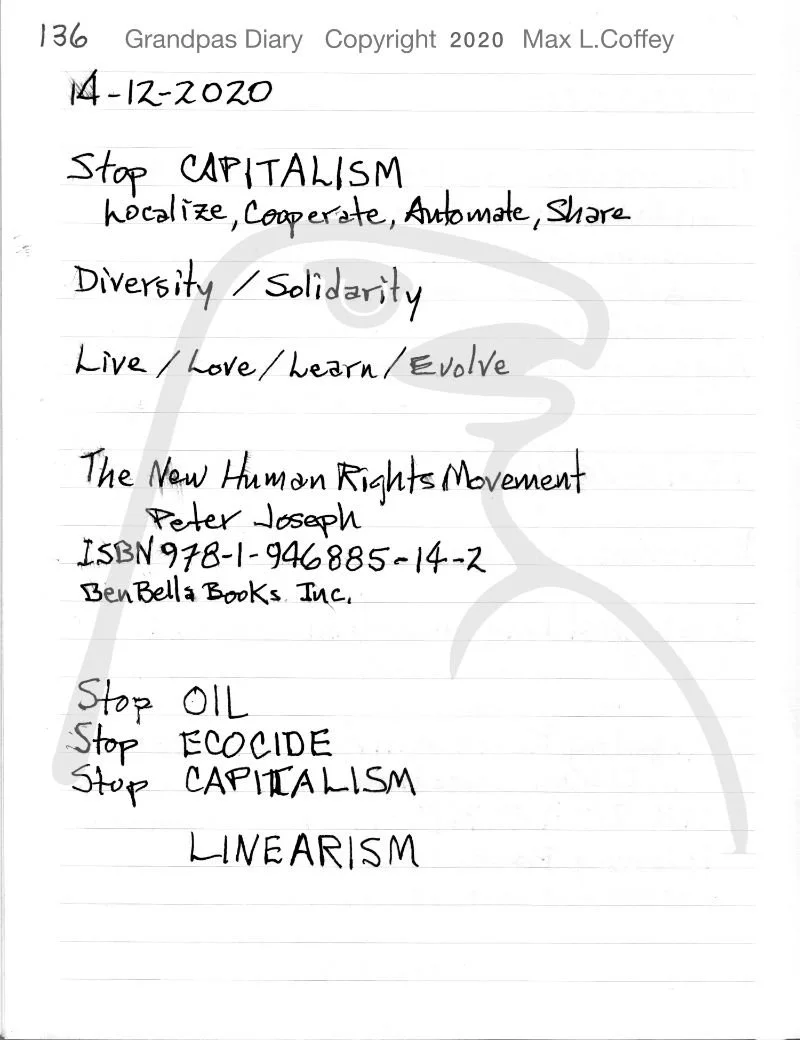 136 Grandpas Diary Copyright 2020 Max L.Coffey
14-12-2020
Stop CAPITALISM
Localize, Cooperate, Automate, Share
Diversity / Solidarity
Live / Love / Learn / Evolve
The New Human Rights Movement
Peter Joseph
ISBN 978-1-946885-14-2
BenBella Books Inc.
Stop OIL
Stop ECOCIDE
Stop CAPITALISM
LINEARISM